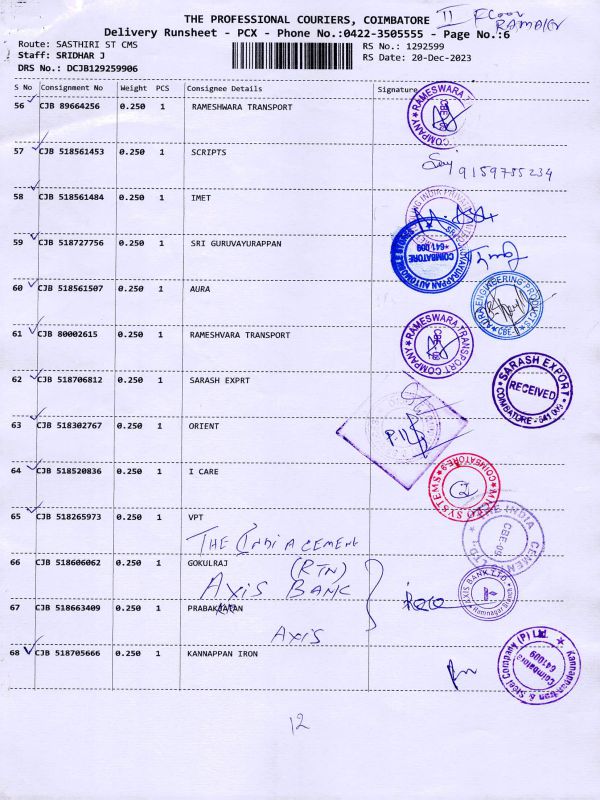 THE PROFESSIONAL COURIERS, COIMBATORE II Floor
Delivery Runsheet - PCX - Phone No.:0422-3505555 - Page No.:6
Route: SASTHIRI ST CMS RS No.: 1292599
Staff: SRIDHAR J RS Date: 20-Dec-2023
DRS No.: DCJB129259906
S No Consignment No Weight PCS Consignee Details Signature
56 CJB 89664256 0.250 1 RAMESHWARA TRANSPORT
RAMESWARA TRA COMPANY CBE
57 CJB 518561453 0.250 1 SCRIPTS
9159755234
58 CJB 518561484 0.250 1 IMET
59 CJB 518727756 0.250 1 SRI GURUVAYURAPPAN
COIMBATORE 641 009
60 CJB 518561507 0.250 1 AURA
AURA ENGINEERING PRODUCTS CBE
61 CJB 80002615 0.250 1 RAMESHVARA TRANSPORT
RAMESWARA TRANSPORT COMPANY CBE
62 CJB 518706812 0.250 1 SARASH EXPRT
SARASH EXPORT RECEIVED COIMBATORE - 641 009
63 CJB 518302767 0.250 1 ORIENT
64 CJB 518520836 0.250 1 I CARE
MICRO SYSTEMS COIMBATORE-9
65 CJB 518265973 0.250 1 VPT
THE INDIA CEMENT
THE INDIA CEMENT LTD CBE-09
66 CJB 518606062 0.250 1 GOKULRAJ (RTN)
AXIS BANK
AXIS BANK LTD. Ramnagar
67 CJB 518663409 0.250 1 PRABAKARAN
AXIS
68 CJB 518705666 0.250 1 KANNAPPAN IRON
Kannappan Iron & Steel Company (P) Ltd. Coimbatore 641009
12